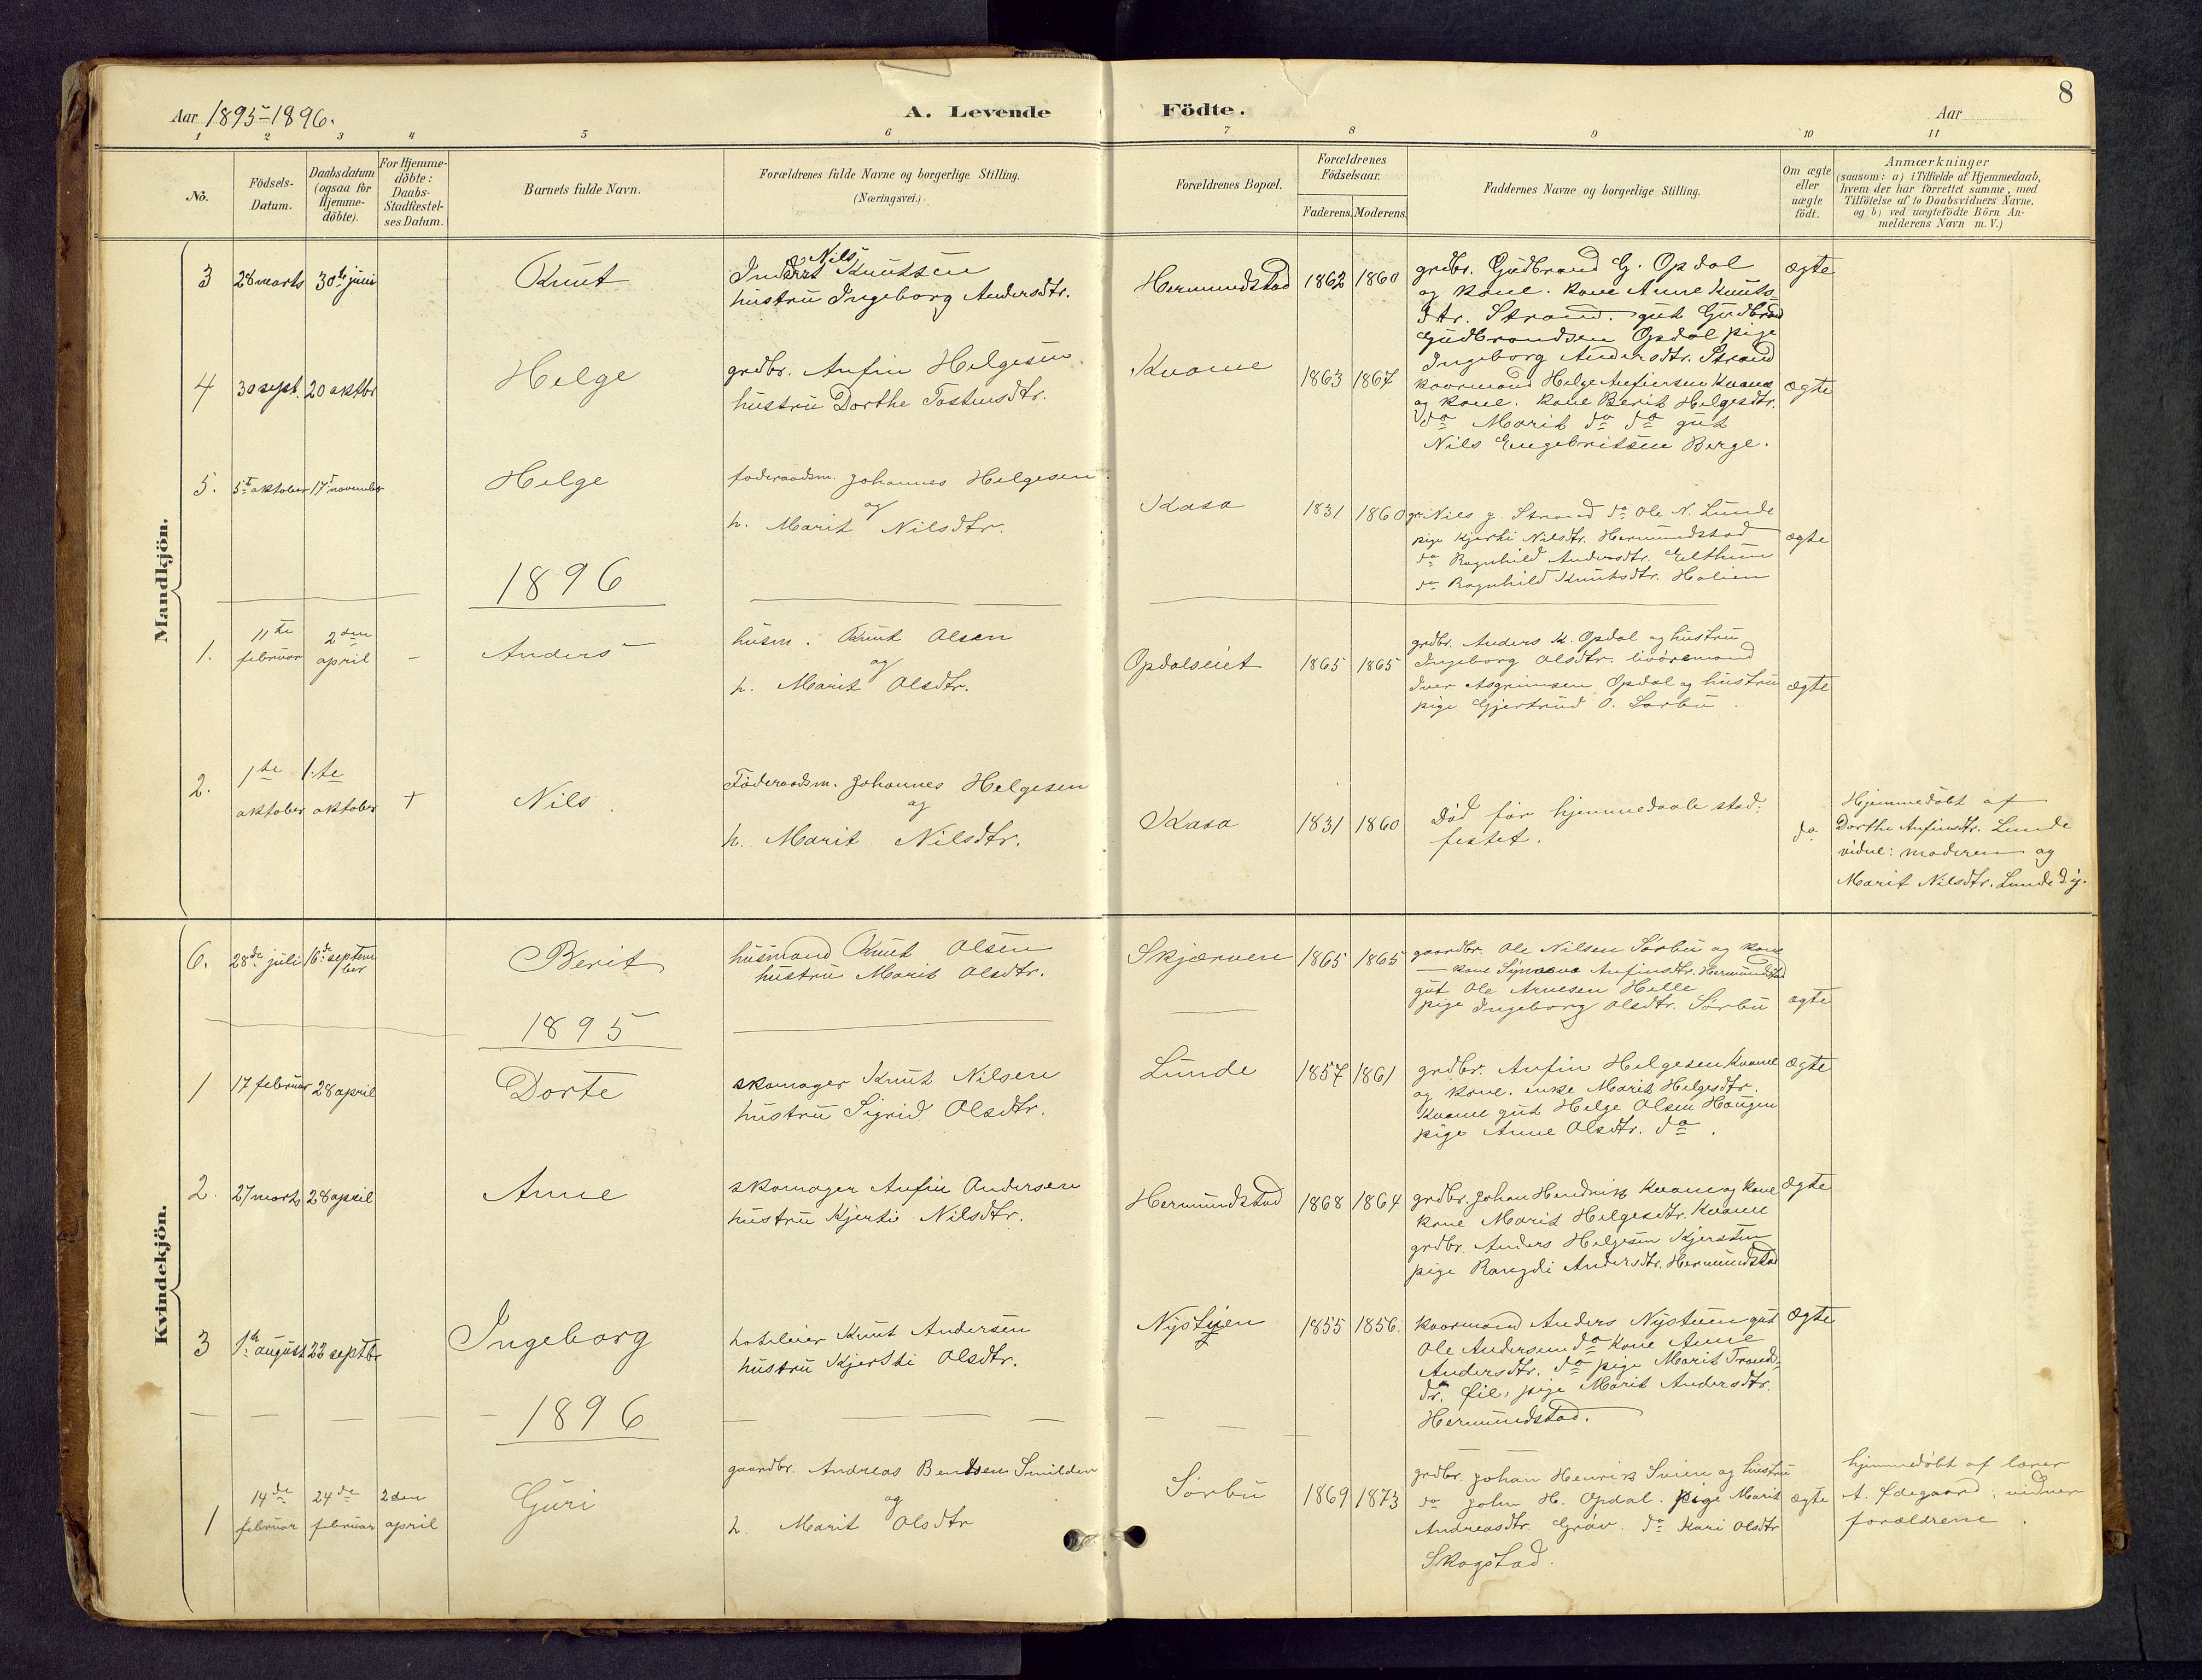 Aar 1895-1896.
A. Levende Födte.
Aar
8
1 2 3 4 5 6 7 8 9 10 11
No.
Födsels-Datum.
Daabsdatum (ogsaa for Hjemme-döbte).
For Hjemme-döbte: Daabs-Stadfæstel-ses Datum.
Barnets fulde Navn.
Forældrenes fulde Navne og borgerlige Stilling.
(Næringsvei.)
Forældrenes Bopæl.
Forældrenes Födselsaar.
Faderens. Moderens.
Faddernes Navne og borgerlige Stilling.
Om ægte eller uægte födt.
Anmærkninger
(saasom: a) i Tilfælde af Hjemmedaab,
hvem der har forrettet samme, med
Tilföielse af to Daabsvidners Navne.
og b) ved uægtefödte Börn An-
melderens Navn m.V.)
Mandkjön.
3 28 marts 30te juni
Knut
Nils Knutsen
hustru Ingeborg Andersdtr.
Hermundstad 1862 1860
grdbr. Gudbrand G. Opdal
og kone. kone Anne Knuts-
dtr. Strand. gut Gudbrand
Gudbrandsen Opdal pige
Ingeborg Andersdtr. Strand
ægte
4 30 sept. 20 oktbr
Helge
grdbr. Anfin Helgesen
hustru Dorthe Tostensdtr.
Kvame 1863 1867
kaarmand Helge Anfinsen Kvame
og kone. kone Berit Helgesdtr.
do Marit do do gut
Nils Engebritsen Berge.
ægte
5. 5te oktober 17de november
Helge
föderaadsm. Johannes Helgesen
og
h. Marit Nilsdtr.
Kasa 1831 1860
gr. Nils J. Strand do Ole N. Lunde
pige Kjersti Nilsdtr. Hermundstad
do Ragnhild Andersdtr. Eltun
do Ragnhild Knutsdtr. Holien
ægte
1896
1. 11te februar 2den april -
Anders
husm. Knut Olsen
og
h. Marit Olsdtr.
Opdalseiet 1865 1865
grdbr. Anders K. Opdal og hustru
Ingeborg Olsdtr. livöresmand
Iver Asgrimsen Opdal og hustru
pige Gjertrud O. Sørbu.
ægte
2. 1te oktober 1.te oktober +
Nils.
Föderaadsm. Johannes Helgesen
og
h. Marit Nilsdtr.
Kasa 1831 1860
Död för hjemmedaab stad-
festet.
do
Hjemmedöbt af
Dorthe Anfinsdtr. Lunde
vidne: moderen og
Marit Nilsdtr. Lunde
Kvindekjön.
6. 28de juli 16de september
Berit
husmand Knut Olsen
hustru Marit Olsdtr.
Skjærven 1865 1865
gaardbr. Ole Nilsen Sørbu og kone
— kone Synneva Anfinsdtr. Hermundstad
gut Ole Arnesen Helle
pige Ingeborg Olsdtr. Sørbu
ægte
1895
1 17. februar 28 april
Dorte
skomager Knut Nilsen
hustru Sigrid Olsdtr.
Lunde 1857 1861
grdbr. Anfin Helgesen Kvame
og kone. enke Marit Helgesdtr.
Kvame gut Helge Olsen Haugen
pige Anne Olsdtr. do.
ægte
2. 27 marts 28 april
Anne
skomager Anfin Andersen
hustru Kjersti Nilsdtr.
Hermundstad 1868 1864
grdbr. Johan Hendrik Kvame og kone
kone Marit Helgesdtr. Kvame
grdbr. Anders Helgesen
pige Rangdi Andersdtr. Hermundstad
ægte
3 1te august 22 septbr
Ingeborg
hoteleier Knut Andersen
hustru Kjersti Olsdtr.
Nystuen 1855 1856.
kaarmand Anders Nystuen gut
Ole Andersen do kone Anne
Andersdtr. do pige Marit Trond-
dtr. Øil, pige Marit Andersdtr.
Hermundstad.
ægte
1896
1 14de februar 24de februar 2den april
Guri
gaardbr. Andreas Bendsen Smilden
og
h. Marit Olsdtr
Sørbu 1869 1873
grdbr. Johan Henrik Svien og hustru
do John H. Opdal. pige Marit
Andreasdtr. Grøv. do Kari Olsdtr
Skogstad.
ægte
hjemmedöbt af lærer
A. Ødegaard; vidner
forældrene.